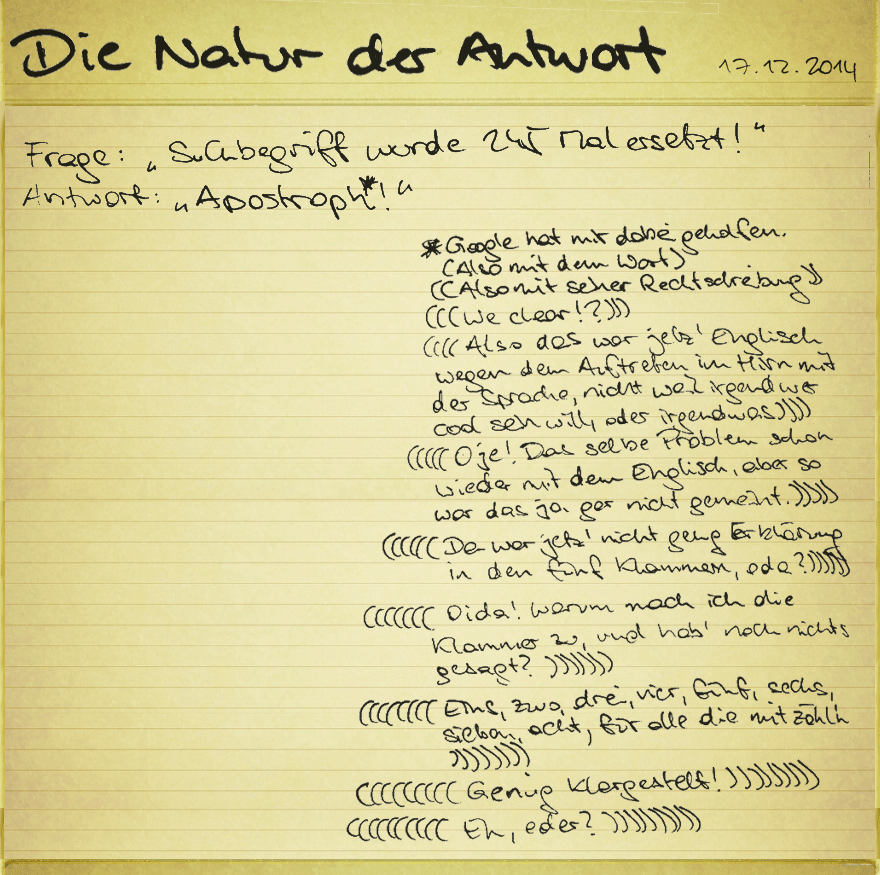 Die Natur der Antwort 17.12.2014
Frage: „Suchbegriff wurde 245 Mal ersetzt!“
Antwort: „Apostroph*!“
*Google hat mir dabei geholfen.
(Also mit dem Wort)
((Also mit seiner Rechtschreibung))
(((We clear!?)))
((((Also das war jetz' Englisch
wegen dem Auftreten im Hirn mit
der Sprache, nicht weil irgendwer
cool sein will, oder irgendwas))))
(((((Oje! Das selbe Problem schon
wieder mit dem Englisch, aber so
war das ja gar nicht gemeint.)))))
((((((Da war jetz' nicht genug Erklärung
in den fünf Klammern, oda?))))))
(((((((Oida! Warum mach ich die
Klammer zu, und hab' noch nichts
gesagt? )))))))
((((((((Eins, zwo, drei, vier, fünf, sechs,
sieben, acht, für alle die mitzähln
))))))))
(((((((((Genug klargestellt! )))))))))
((((((((((Eh, oder? ))))))))))